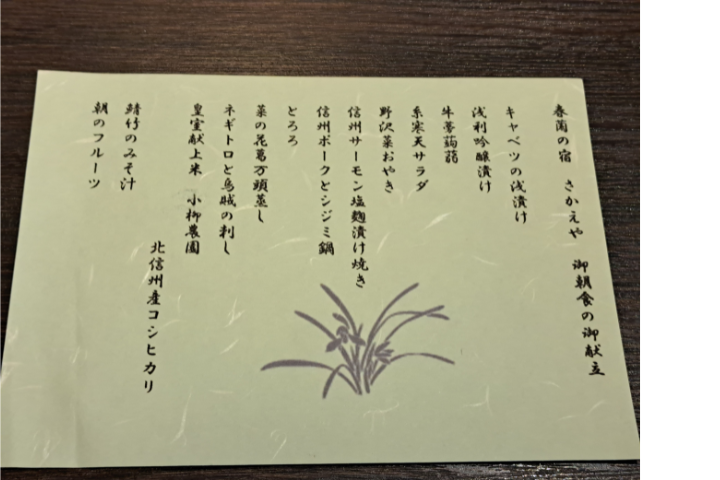 春蘭の宿 さかえや 御朝食の御献立
キャベツの浅漬け
浅利吟醸漬け
牛蒡蒟蒻
糸寒天サラダ
野沢菜おやき
信州サーモン塩麹漬け焼き
信州ポークとシジミ鍋
とろろ
菜の花葛万頭蒸し
ネギトロと烏賊の刺し
皇室献上米 小柳農園
北信州産コシヒカリ
鯖竹のみそ汁
朝のフルーツ